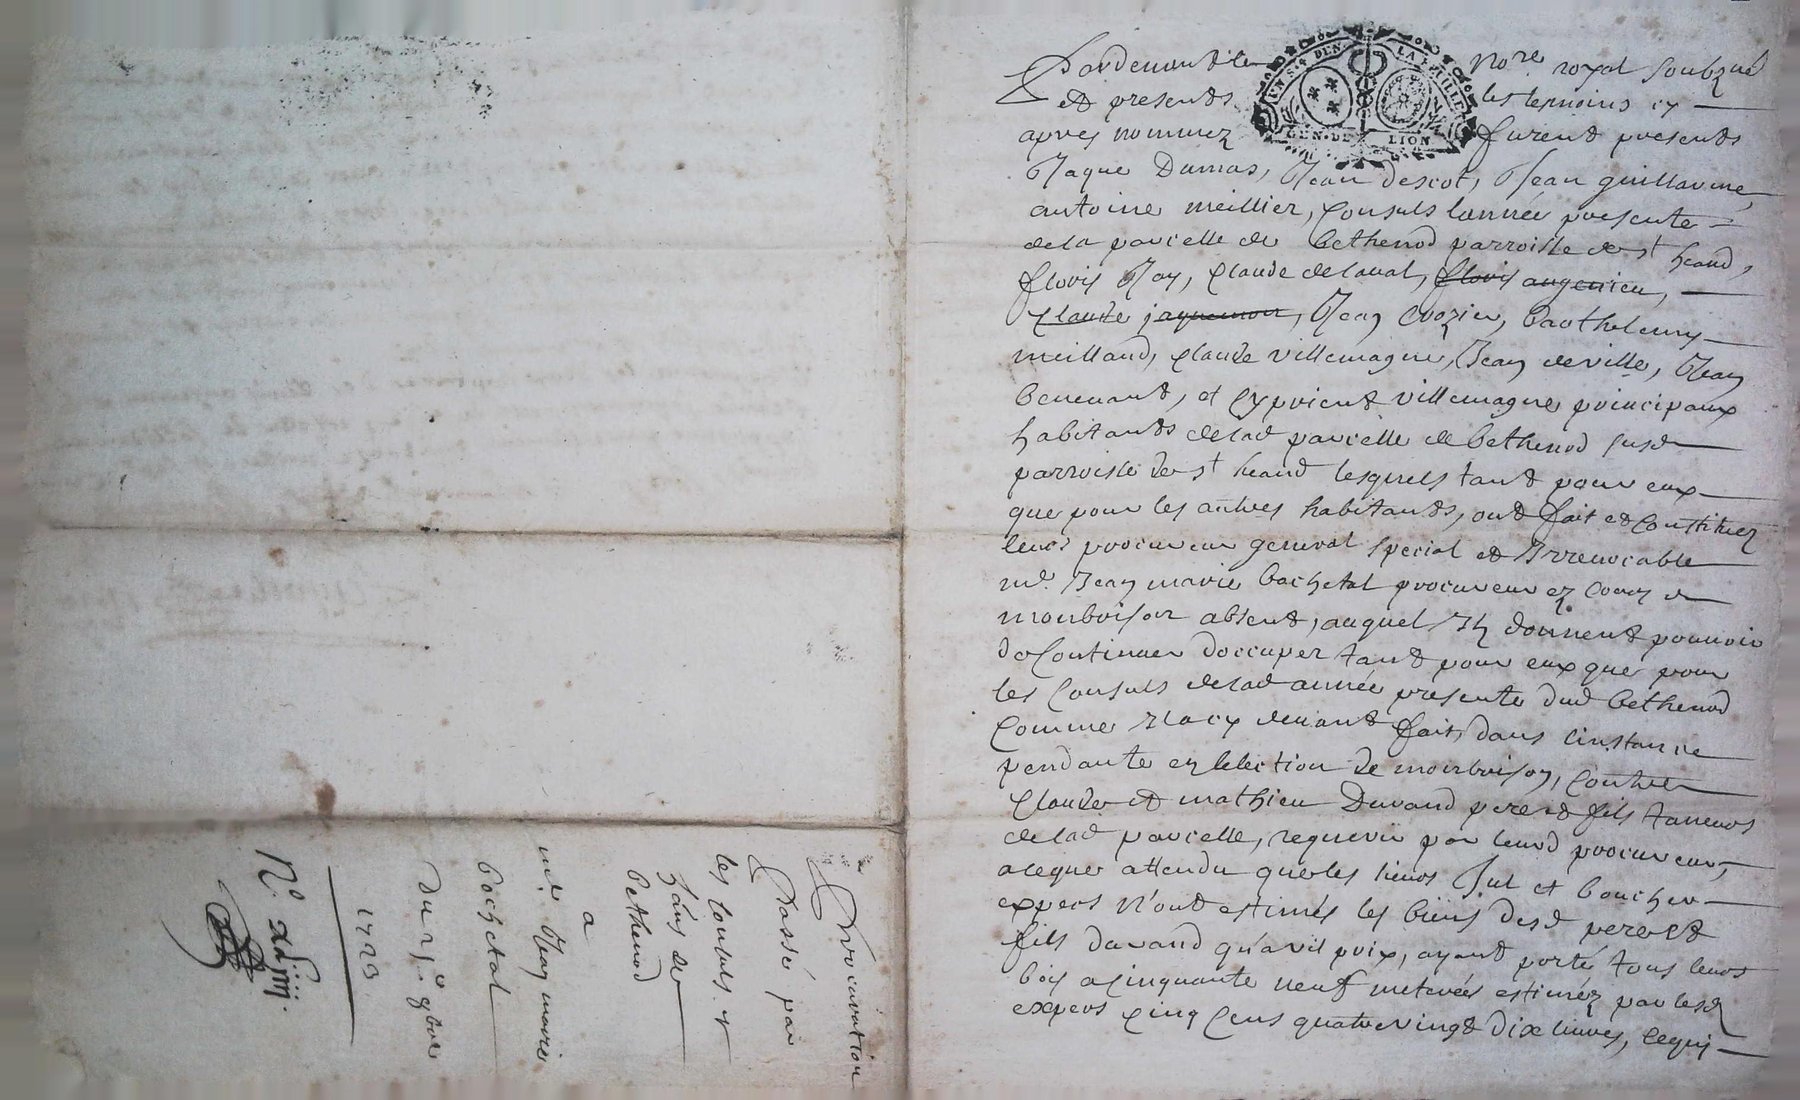 Pardevant le no.re royal soubzné
et presents les temoins cy
apres nommez furent presents
Jaque Dumas, Jean descot, Jean guillaume,
antoine meillier, Consuls lannée presente
dela parcelle de bethenod parroisse de st heand,
flovis Jay, Claude delaval, flovis augenieu,
Claude jaquemon, Jean Crozier, barthelemy
meilland, Claude villemagne, Jean deville, Jean
benevant, et Cyprient villemagne principaux
habitants delad parcelle de bethenod susd
parroisse de st heand lesquels tant pour eux
que pour les autres habitants, ont fait et Constituez
leurs procureur general special et Irrevocable
me. Jean marie bachetal procureur ez Cours de
monbrison absent, auquel Ilz donnent pouvoir
de Continuer doccuper tant pour eux que pour
les Consuls delad année presente dud bethenod
Comme Ila cy devant fait, dans linstance
pendante en lelection de monbrison, Contre
Claude et mathieu Durand pere et fils taneurs
delad parcelle, requerir par leurd procureur,
alequer attendu que les sieurs Jul et boucher
expers n'ont estimés les biens desd pere et
fils durand qu'a vil prix, ayant porté tous leurs
bois a Cinquante neuf meterées estiméz par lesd
expers Cinq Cens quatrevingt dix livres, cequi
Procuration
Passé par
les Consuls &
bethenod
a
me. Jean marie
bachetal
Du 9bre
1723
N°.
EN S. 4 DEN. LA FEUILLE
GEN. DE LION